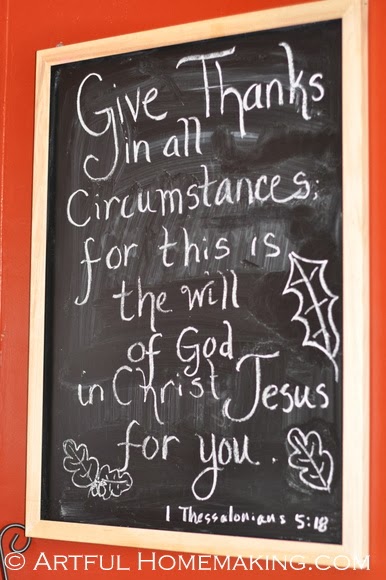 Give Thanks
in all
Circumstances;
for this is
the will
of God
in Christ Jesus
for you.
1 Thessalonians 5:18
© Artful Homemaking.com